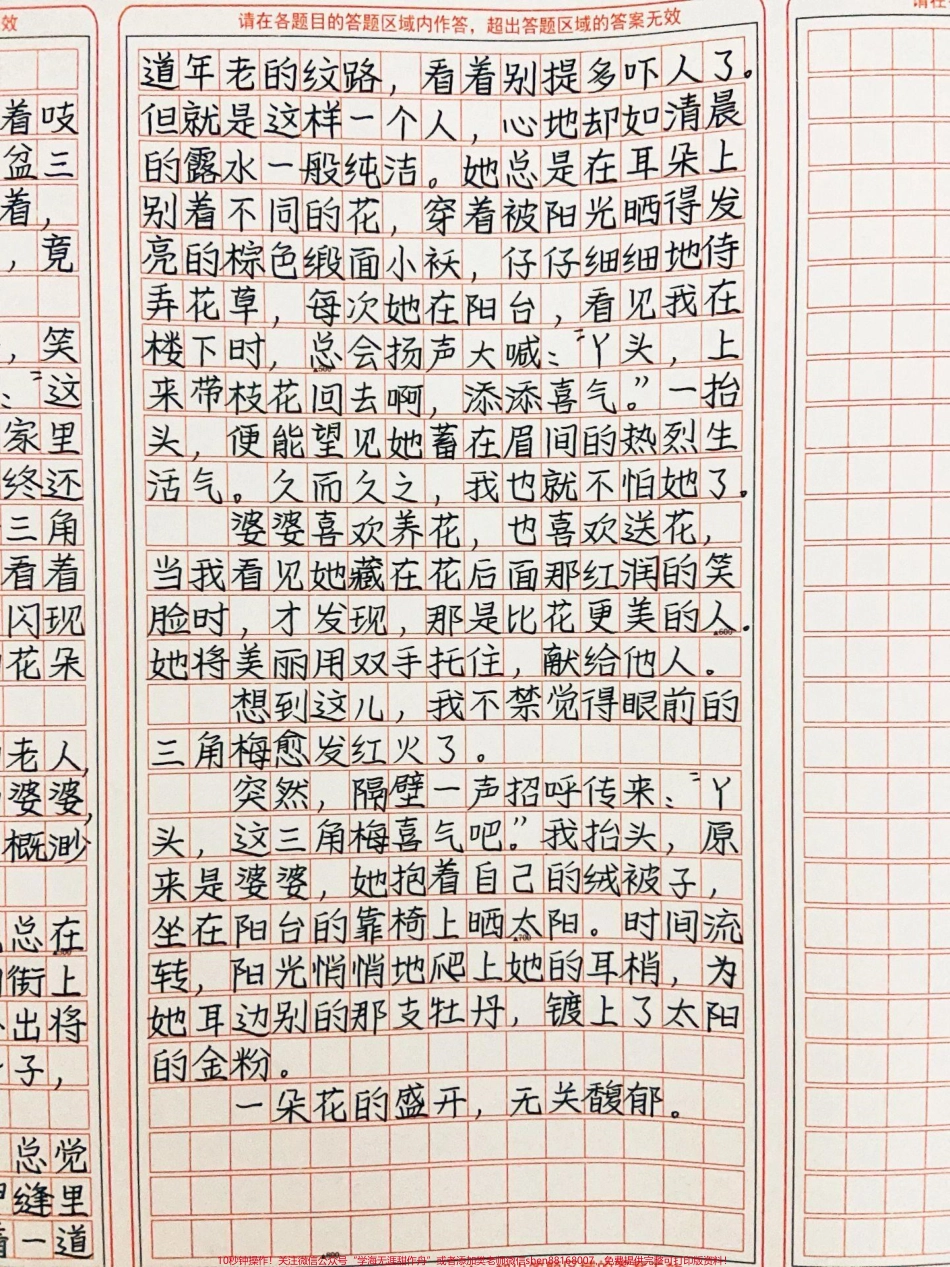 请在各题目的答题区域内作答，超出答题区域的答案无效
效
着吱
盆三
着，
，竟
，笑
：“这
家里
终还
三角
看着
闪现
花朵
老人，
婆婆，
概渺
总在
街上
出将
子，
总觉
缝里
着一道
道年老的纹路，看着别提多吓人了。
但就是这样一个人，心地却如清晨
的露水一般纯洁。她总是在耳朵上
别着不同的花，穿着被阳光晒得发
亮的棕色缎面小袄，仔仔细细地侍
弄花草，每次她在阳台，看见我在
楼下时，总会扬声大喊：“丫头，上
来带枝花回去啊，添添喜气。”一抬
头，便能望见她蓄在眉间的热烈生
活气。久而久之，我也就不怕她了。
婆婆喜欢养花，也喜欢送花，
当我看见她藏在花后面那红润的笑
脸时，才发现，那是比花更美的人。
她将美丽用双手托住，献给他人。
想到这儿，我不禁觉得眼前的
三角梅愈发红火了。
突然，隔壁一声招呼传来：“丫
头，这三角梅喜气吧。”我抬头，原
来是婆婆，她抱着自己的绒被子，
坐在阳台的靠椅上晒太阳。时间流
转，阳光悄悄地爬上她的耳梢，为
她耳边别的那支牡丹，镀上了太阳
的金粉。
一朵花的盛开，无关馥郁。
▲600
▲700
▲800